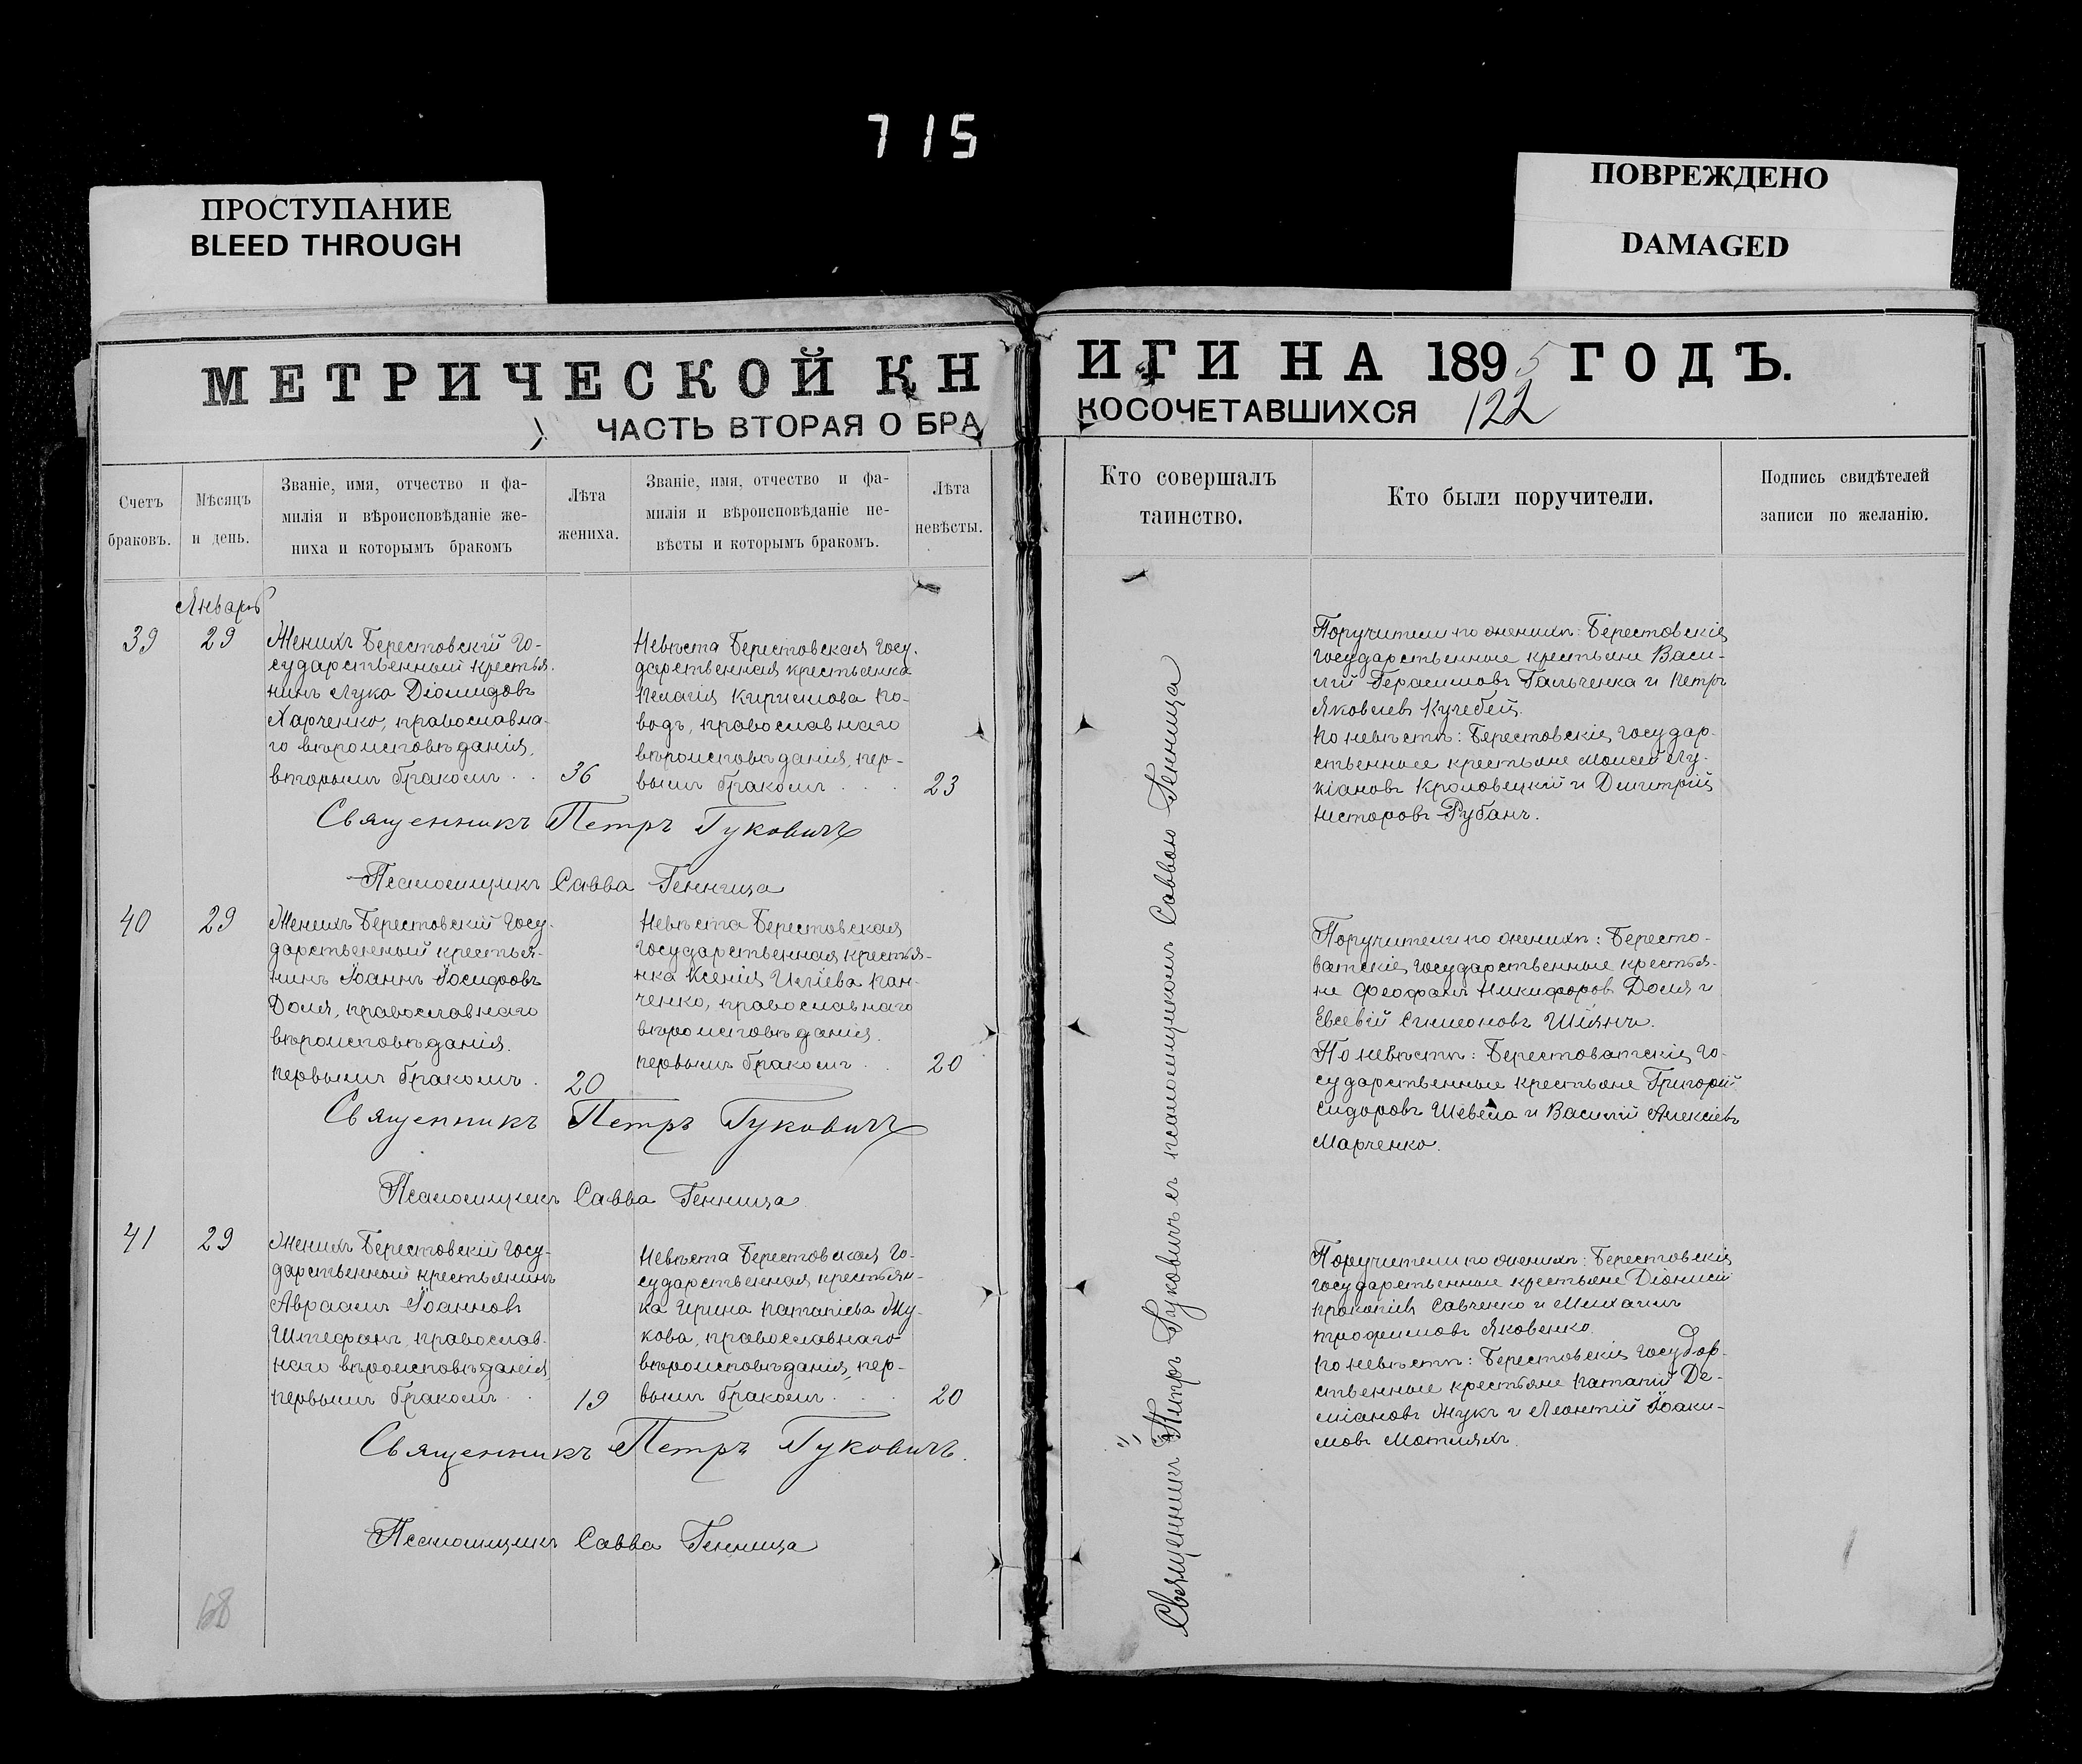 715
ПРОСТУПАНИЕ
BLEED THROUGH
ПОВРЕЖДЕНО
DAMAGED
МЕТРИЧЕСКОЙ КН
ЧАСТЬ ВТОРАЯ О БРА
Счетъ
браковъ.
Мѣсяцъ
и день.
Званіе, имя, отчество и фа-
милія и вѣроисповѣданіе же-
ниха и которымъ бракомъ
Лѣта
жениха.
Званіе, имя, отчество и фа-
милія и вѣроисповѣданіе не-
вѣсты и которымъ бракомъ.
Лѣта
невѣсты.
Январь
39
29
Женихъ Берестовскій Го-
сударственный крестья-
нинъ Лука Діомидовъ
Харченко, православна-
го вѣроисповѣданія,
вторымъ бракомъ . .
36
Невѣста Берестовская Госу-
дарственная крестьянка
Пелагія Кириллова По-
водъ, православнаго
вѣроисповѣданія, пер-
вымъ бракомъ . . .
23
Священникъ Петръ Гуковичъ
Псаломщикъ Савва Генница
40
29
Женихъ Берестовскій Госу-
дарственный крестья-
нинъ Іоаннъ Іосифовъ
Доля, православнаго
вѣроисповѣданія.
первымъ бракомъ .
20
Невѣста Берестовская
Государственная крестья-
нка Ксенія Иліева Пан-
ченко, православнаго
вѣроисповѣданія.
первымъ бракомъ . .
20
Священникъ Петръ Гуковичъ
Псаломщикъ Савва Генница
41
29
Женихъ Берестовскій Госу-
дарственный крестьянинъ
Авраамъ Іоанновъ
Штефанъ, православ-
наго вѣроисповѣданія
первымъ бракомъ . .
19
Невѣста Берестовская Го-
сударственная крестьян-
ка Ирина Патапіева Жу-
кова, православнаго
вѣроисповѣданія, пер-
вымъ бракомъ . . .
20
Священникъ Петръ Гуковичъ.
Псаломщикъ Савва Генница
68
ИГИ НА 1895 ГОДЪ.
КОСОЧЕТАВШИХСЯ 122
Кто совершалъ
таинство.
Кто были поручители.
Подпись свидѣтелей
записи по желанію.
Священникъ Петръ Гуковичъ съ псаломщикомъ Саввою Генница
Поручители по женихѣ: Берестовскіе
Государственные крестьяне Васи-
лій Герасимовъ Гальченка и Петръ
Яковлевъ Кучебей.
По невѣстѣ: Берестовскіе Государ-
ственные крестьяне Моисей Лу-
кіановъ Кроловецкій и Димитрій
Несторовъ Рубанъ.
Поручители по женихѣ: Бересто-
ватскіе Государственные крестья-
не Феофанъ Никифоровъ Доля и
Евсевій Симеоновъ Шіянъ.
По невѣстѣ: Берестоватскіе Го-
сударственные крестьяне Григорій
Сидоровъ Шевела и Василій Алексіевъ
Марченко.
Поручители по женихѣ: Берестовскіе
Государственные крестьяне Діонисій
Прокопіевъ Савченко и Михаилъ
Трофимовъ Яковенко.
По невѣстѣ: Берестовскіе Государ-
ственные крестьяне Патапій Де-
міановъ Жукъ и Леонтій Іоаки-
мовъ Мотляхъ.